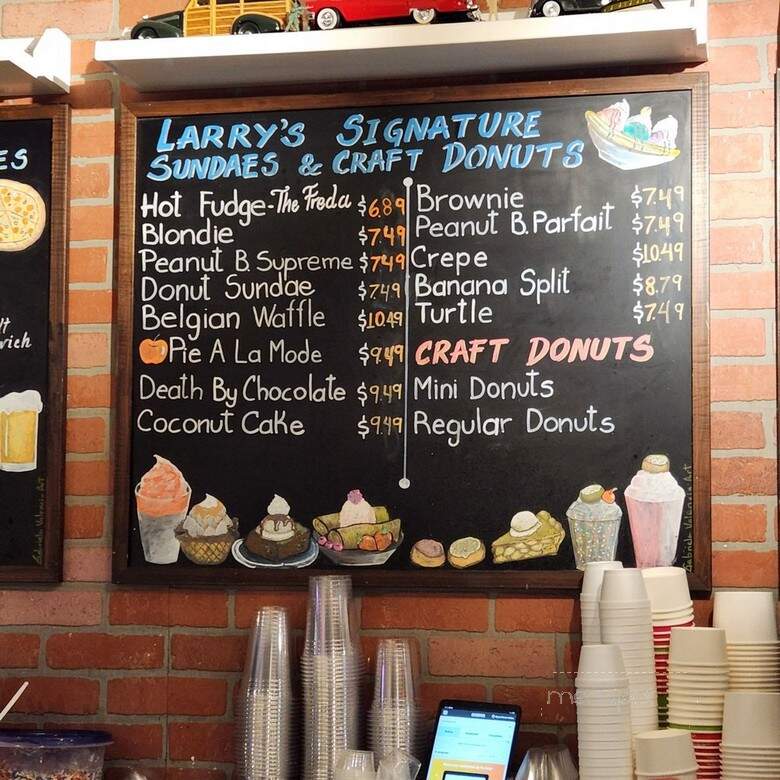 LARRY'S SIGNATURE
SUNDAES & CRAFT DONUTS
Hot Fudge-The Freda $6.89
Blondie $7.49
Peanut B. Supreme $7.49
Donut Sundae $7.49
Belgian Waffle $10.49
Pie A La Mode $9.49
Death By Chocolate $9.49
Coconut Cake $9.49
Brownie $7.49
Peanut B. Parfait $7.49
Crepe $10.49
Banana Split $8.79
Turtle $7.49
CRAFT DONUTS
Mini Donuts
Regular Donuts
ES